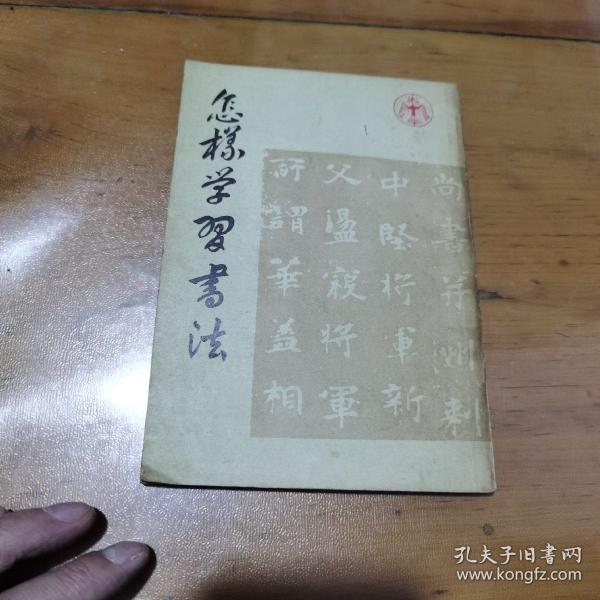 怎樣学習書法
尚書并洲刺
中堅將軍新
父盪寇將軍
所謂華蓋相
孔夫子旧书网
www.kongfz.com